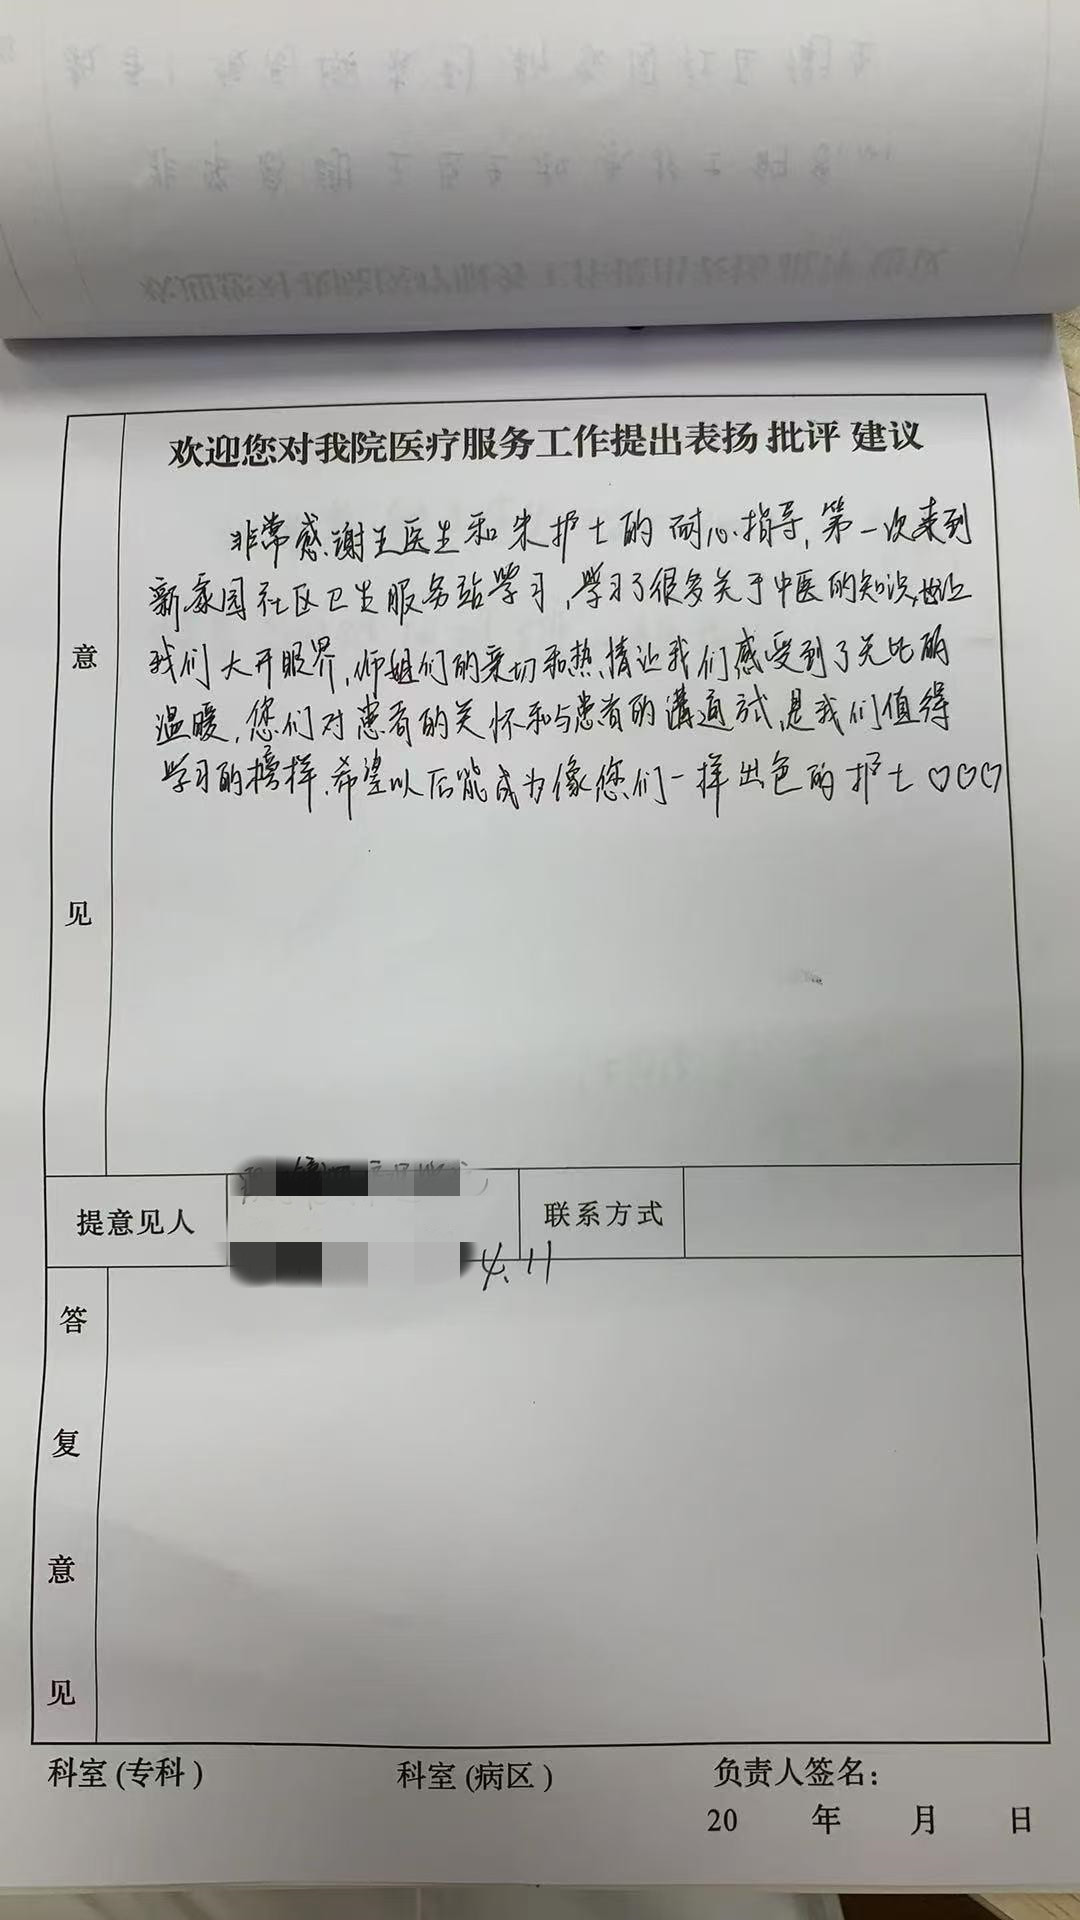 欢迎您对我院医疗服务工作提出表扬 批评 建议
非常感谢王医生和朱护士的耐心指导,第一次来到
新康园社区卫生服务站学习,学习了很多关于中医的知识,也让
我们大开眼界,师姐们的亲切和热情让我们感受到了无比的
温暖,您们对患者的关怀和与患者的溝通方式,是我们值得
学习的榜样,希望以后能成为像您们一样出色的护士♡♡♡
意
见
提意见人
联系方式
4.11
答
复
意
见
科室 (专科 )
科室 (病区 )
负责人签名:
20 年 月 日